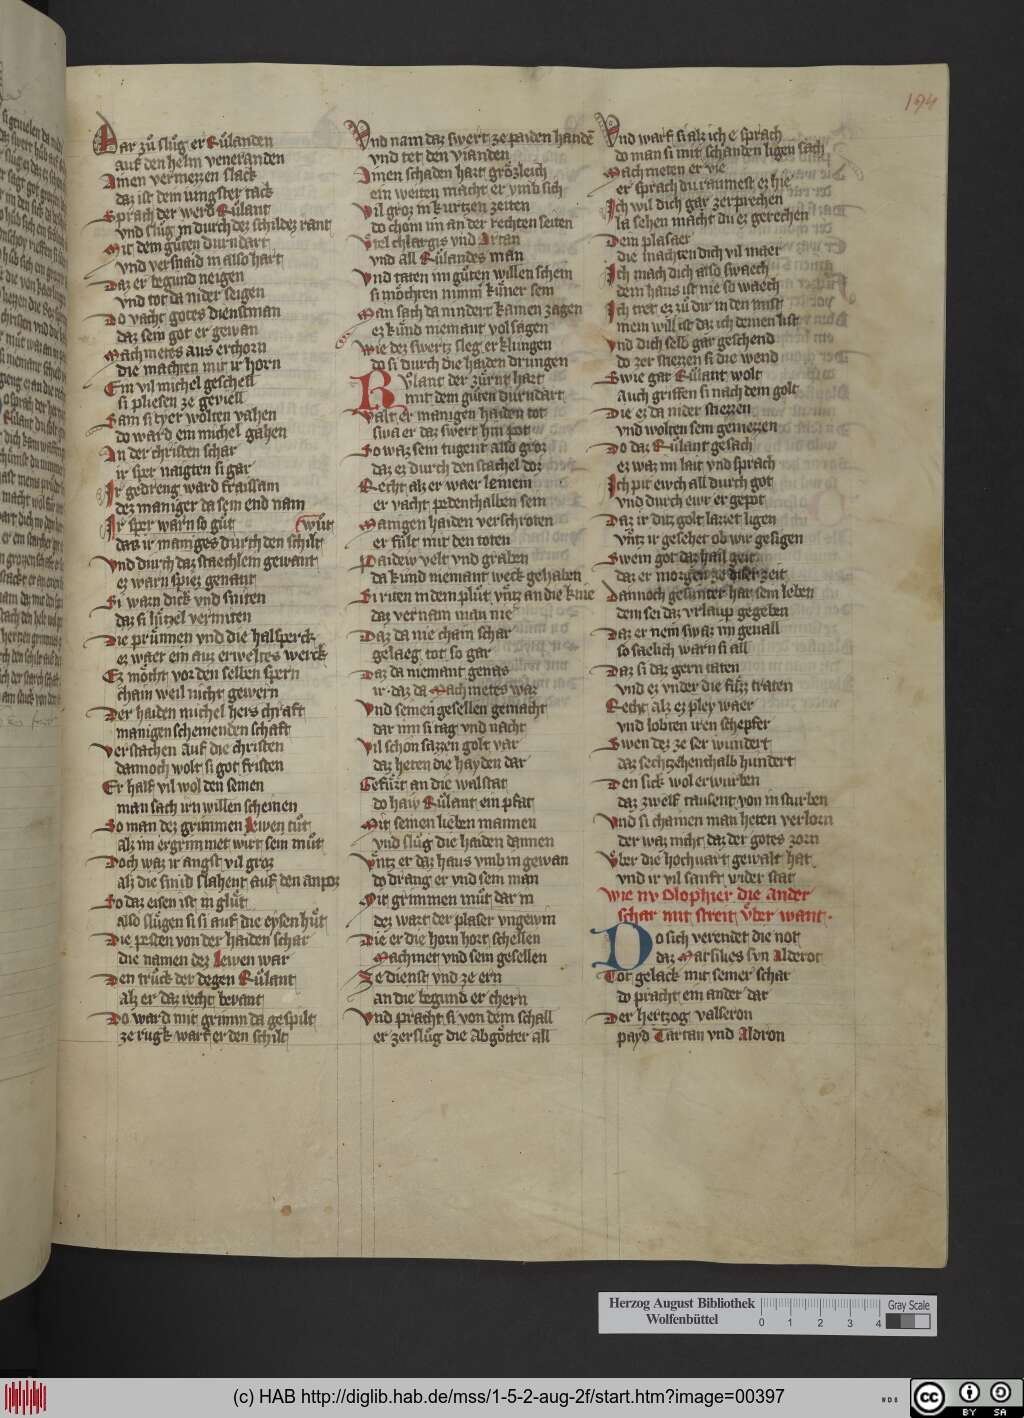 194
Dar zů slůg er Růlanden
auf den helm veneranden
Ainen vermezzen slack
daz ist dem iungster tack
Sprach der werd Růlant
vnd slůg in durch dez schildez rant
Mit dem gůten durndart
vnd versnaid in also hart
Daz er begund neigen
vnd tot da nider seigen
Do vacht gotes dienstman
daz sein got er gewan
Machmetes aus erchorn
die machten mit ir horn
Ein vil michel geschell
si pliesen ze geviell
Sam si tyer wolten vahen
do ward ein michel gahen
In der christen schar
ir sper naigten si gar
Ir gedreng ward fraissam
dez maniger da sein end nam
Ir sper warn so gůt
wůt
daz ir maniges durch den schilt
Vnd durch daz staechlein gewant
ez warn spiez genant
Si warn dick vnd sniten
daz si lützel vermiten
Die prünnen vnd die halsperck
ez waer ein auz erweltes werck
Ez möcht vor den selben spern
chain weil nicht gewern
Der haiden michel hers chraft
manigen scheinenden schaft
Verstachen auf die christen
dannoch wolt si got fristen
Er half vil wol den seinen
man sach irn willen scheinen
So man dez grimmen Lewen tůt
alz im ergrimmet wirt sein můt
Doch waz ir angst vil groz
alz die smid slahent auf den anpoz
So daz eisen ist in glůt
also slůgen si si auf die eysen hůt
Die pesten von der haiden schar
die namen dez Lewen war
Den trůck der degen Růlant
alz er daz recht bevant
Do ward mit grimm da gespilt
ze rugk warf er den schilt
Vnd nam daz swert ze paiden handē
vnd tet den vianden
Ainen schaden hart grözleich
ein weiten macht er vmb sich
Vil groz in kurtzen zeiten
do chom im an der rechten seiten
Vrelchlargis vnd Artan
vnd all Růlandes man
Vnd taten im gůten willen schein
si möchten nimm kůner sein
Man sach da nindert kainen zagen
ez kůnd niemant vol sagen
Wie dez swertz sleg erklungen
do si durch die haiden drungen
Růlant der zůrnt hart
mit dem gůten durndart
Valt er manigen haiden tot
swa er daz swert hin pot
So waz sein tugent also groz
daz ez durch den stachel doz
Recht alz er waer leinein
er vacht pedenthalben sein
Manigen haiden verschroten
er fůlt mit den toten
Paidew velt vnd graben
da kund niemant weck gehaben
Si riten in dem plůt vntz an die knie
daz vernam man nie
Daz da nie chain schar
gelaeg tot so gar
Daz da niemant genas
ir daz da Machmetes waz
Vnd seinen gesellen gemacht
dar inn si tag vnd nacht
Vil schon sazzen golt var
daz heten die hayden dar
Gefůrt an die walstat
do haw Růlant ein pfat
Mit seinen lieben mannen
vnd slůg die haiden dannen
Vntz er daz haus vmb in gewan
do drang er vnd sein man
Mit grimmen můt dar in
dez wart der plaser vngewin
Die er die horn hort schellen
Machmet vnd sein gesellen
Ze dienst vnd ze ern
an die begund er chern
Vnd pracht si von dem schall
er zerslůg die abgötter all
Vnd warf si alz ich e sprach
do man si mit schanden ligen sach
Machmeten er vie
er sprach du raumest ez hie
Ich wil dich gar zerprechen
la sehen macht du ez gerechen
Dein plasaer
die machten dich vil maer
Ich mach dich also swaech
dein haus ist nie so waech
Ich tret ez zů dir in den mist
mein will ist daz ich deinen list
Vnd dich selb gar geschend
do zer stiezzen si die wend
Swie gar Růlant wolt
auch griffen si nach dem golt
Die ez da nider stiezzen
vnd wolten sein geniezzen
Do daz Růlant gesach
ez waz im lait vnd sprach
Ich pit ewch all durch got
vnd durch ewr er gepot
Daz ir ditz golt lazzet ligen
vntz ir gesehet ob wir gesigen
Swem got daz hail geit
daz er morgen ze diser zeit
Dannoch gesunter hat sein leben
dem sei daz vrlaup gegeben
Daz er nem swaz im geuall
so saelich warn si all
Daz si daz gern taten
vnd ez vnder die fůzz traten
Recht alz ez pley waer
vnd lobten iren schepfer
Swen dez ze ser wundert
daz sechtzehenthalb hundert
Den sick wol erwurben
daz zwelf tausent von in sturben
Vnd si chainen man heten verlorn
der waz nicht daz der gotes zorn
Vber die hochuart gewalt hat
vnd ir vil sanft wider stat
Wie nv Olophier die ander
schar mit streit vber want.
Do sich verendet die not
daz Marsilies svn Alderot
Tot gelack mit seiner schar
do pracht ein ander dar
Der hertzog valseron
payd Tartan vnd Aldron
Herzog August Bibliothek
Wolfenbüttel
0 1 2 3 4
Gray Scale
(c) HAB http://diglib.hab.de/mss/1-5-2-aug-2f/start.htm?image=00397
cc BY SA